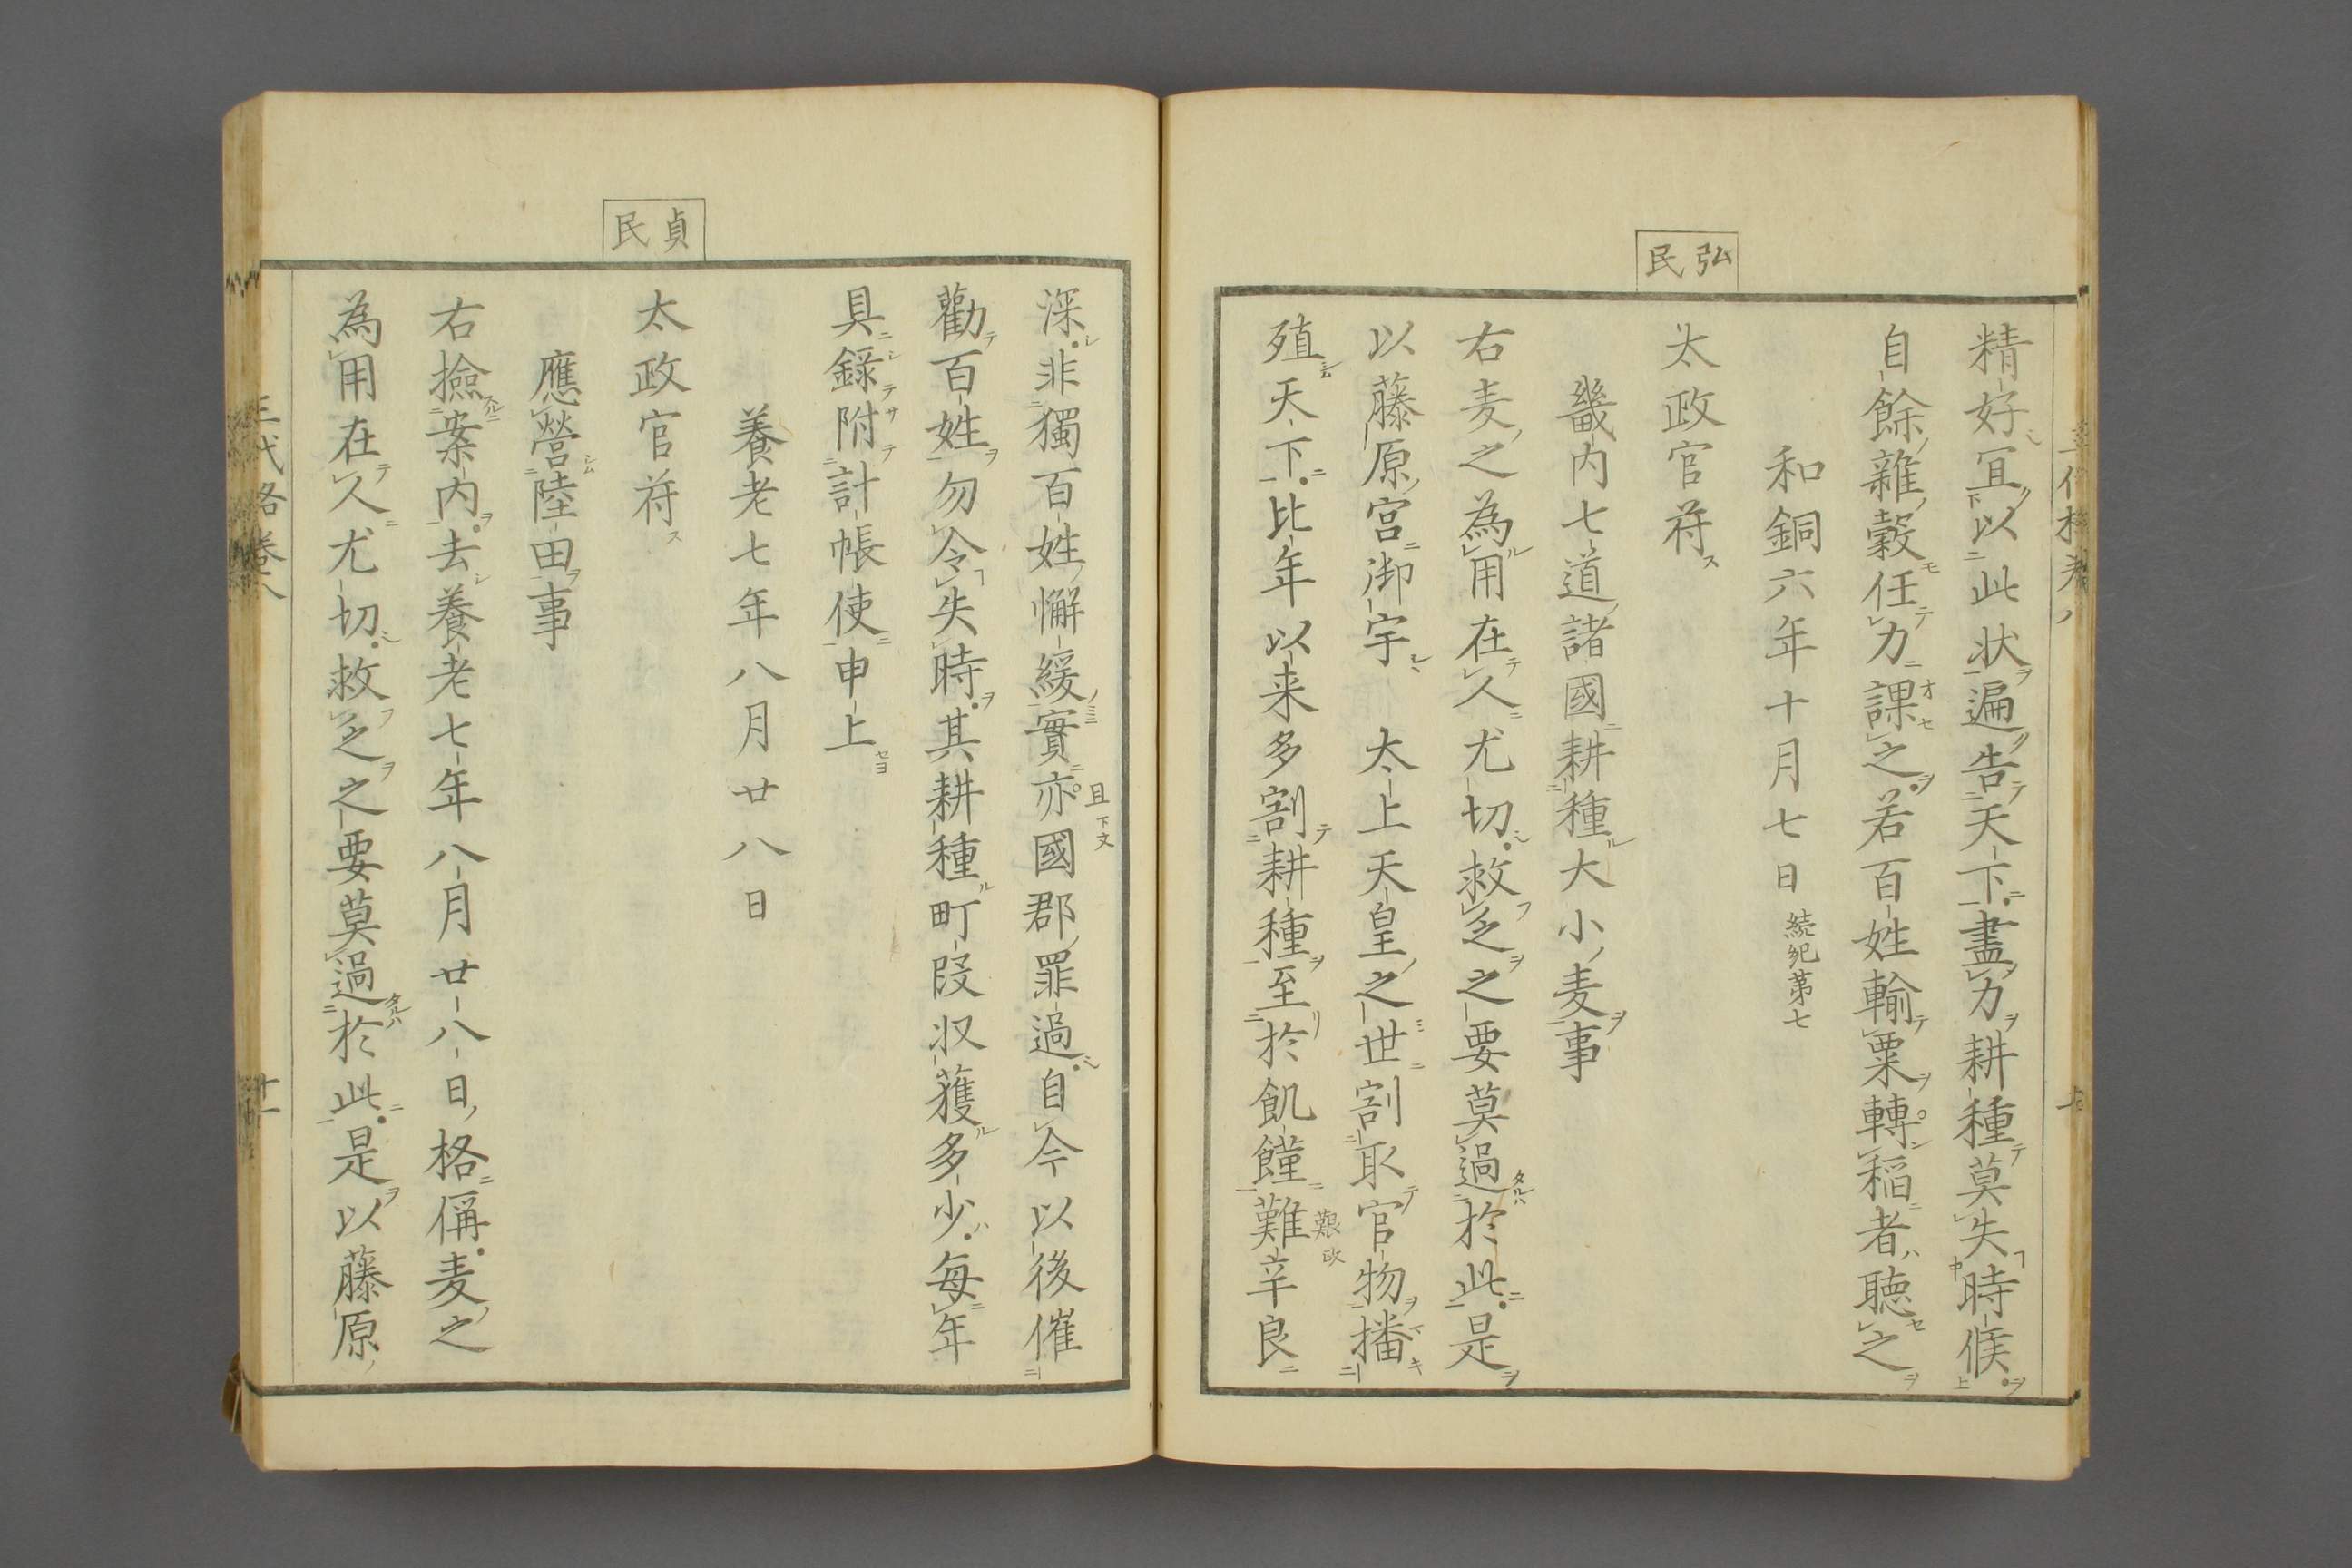 三代格巻八
弘民
精好宜以此状遍告天下盡力耕種莫失時候
自餘雜穀任力課之若百姓輸粟轉稲者聴之
和銅六年十月七日 続紀第七
太政官苻
畿内七道諸國耕種大小麦事
右麦之為用在人尤切救乏之要莫過於此是
以藤原宮御宇 太上天皇之世割取官物播
殖天下比年以来多割耕種至於飢饉難辛良
艱 改
貞民
深非獨百姓懈緩實亦國郡罪過自今以後催
且下文
勸百姓勿令失時其耕種町段収獲多少每年
具録附計帳使申上
養老七年八月廿八日
太政官苻
應營陸田事
右撿案内去養老七年八月廿八日格偁麦之
為用在人尤切救乏之要莫過於此是以藤原
三代格巻八
十一